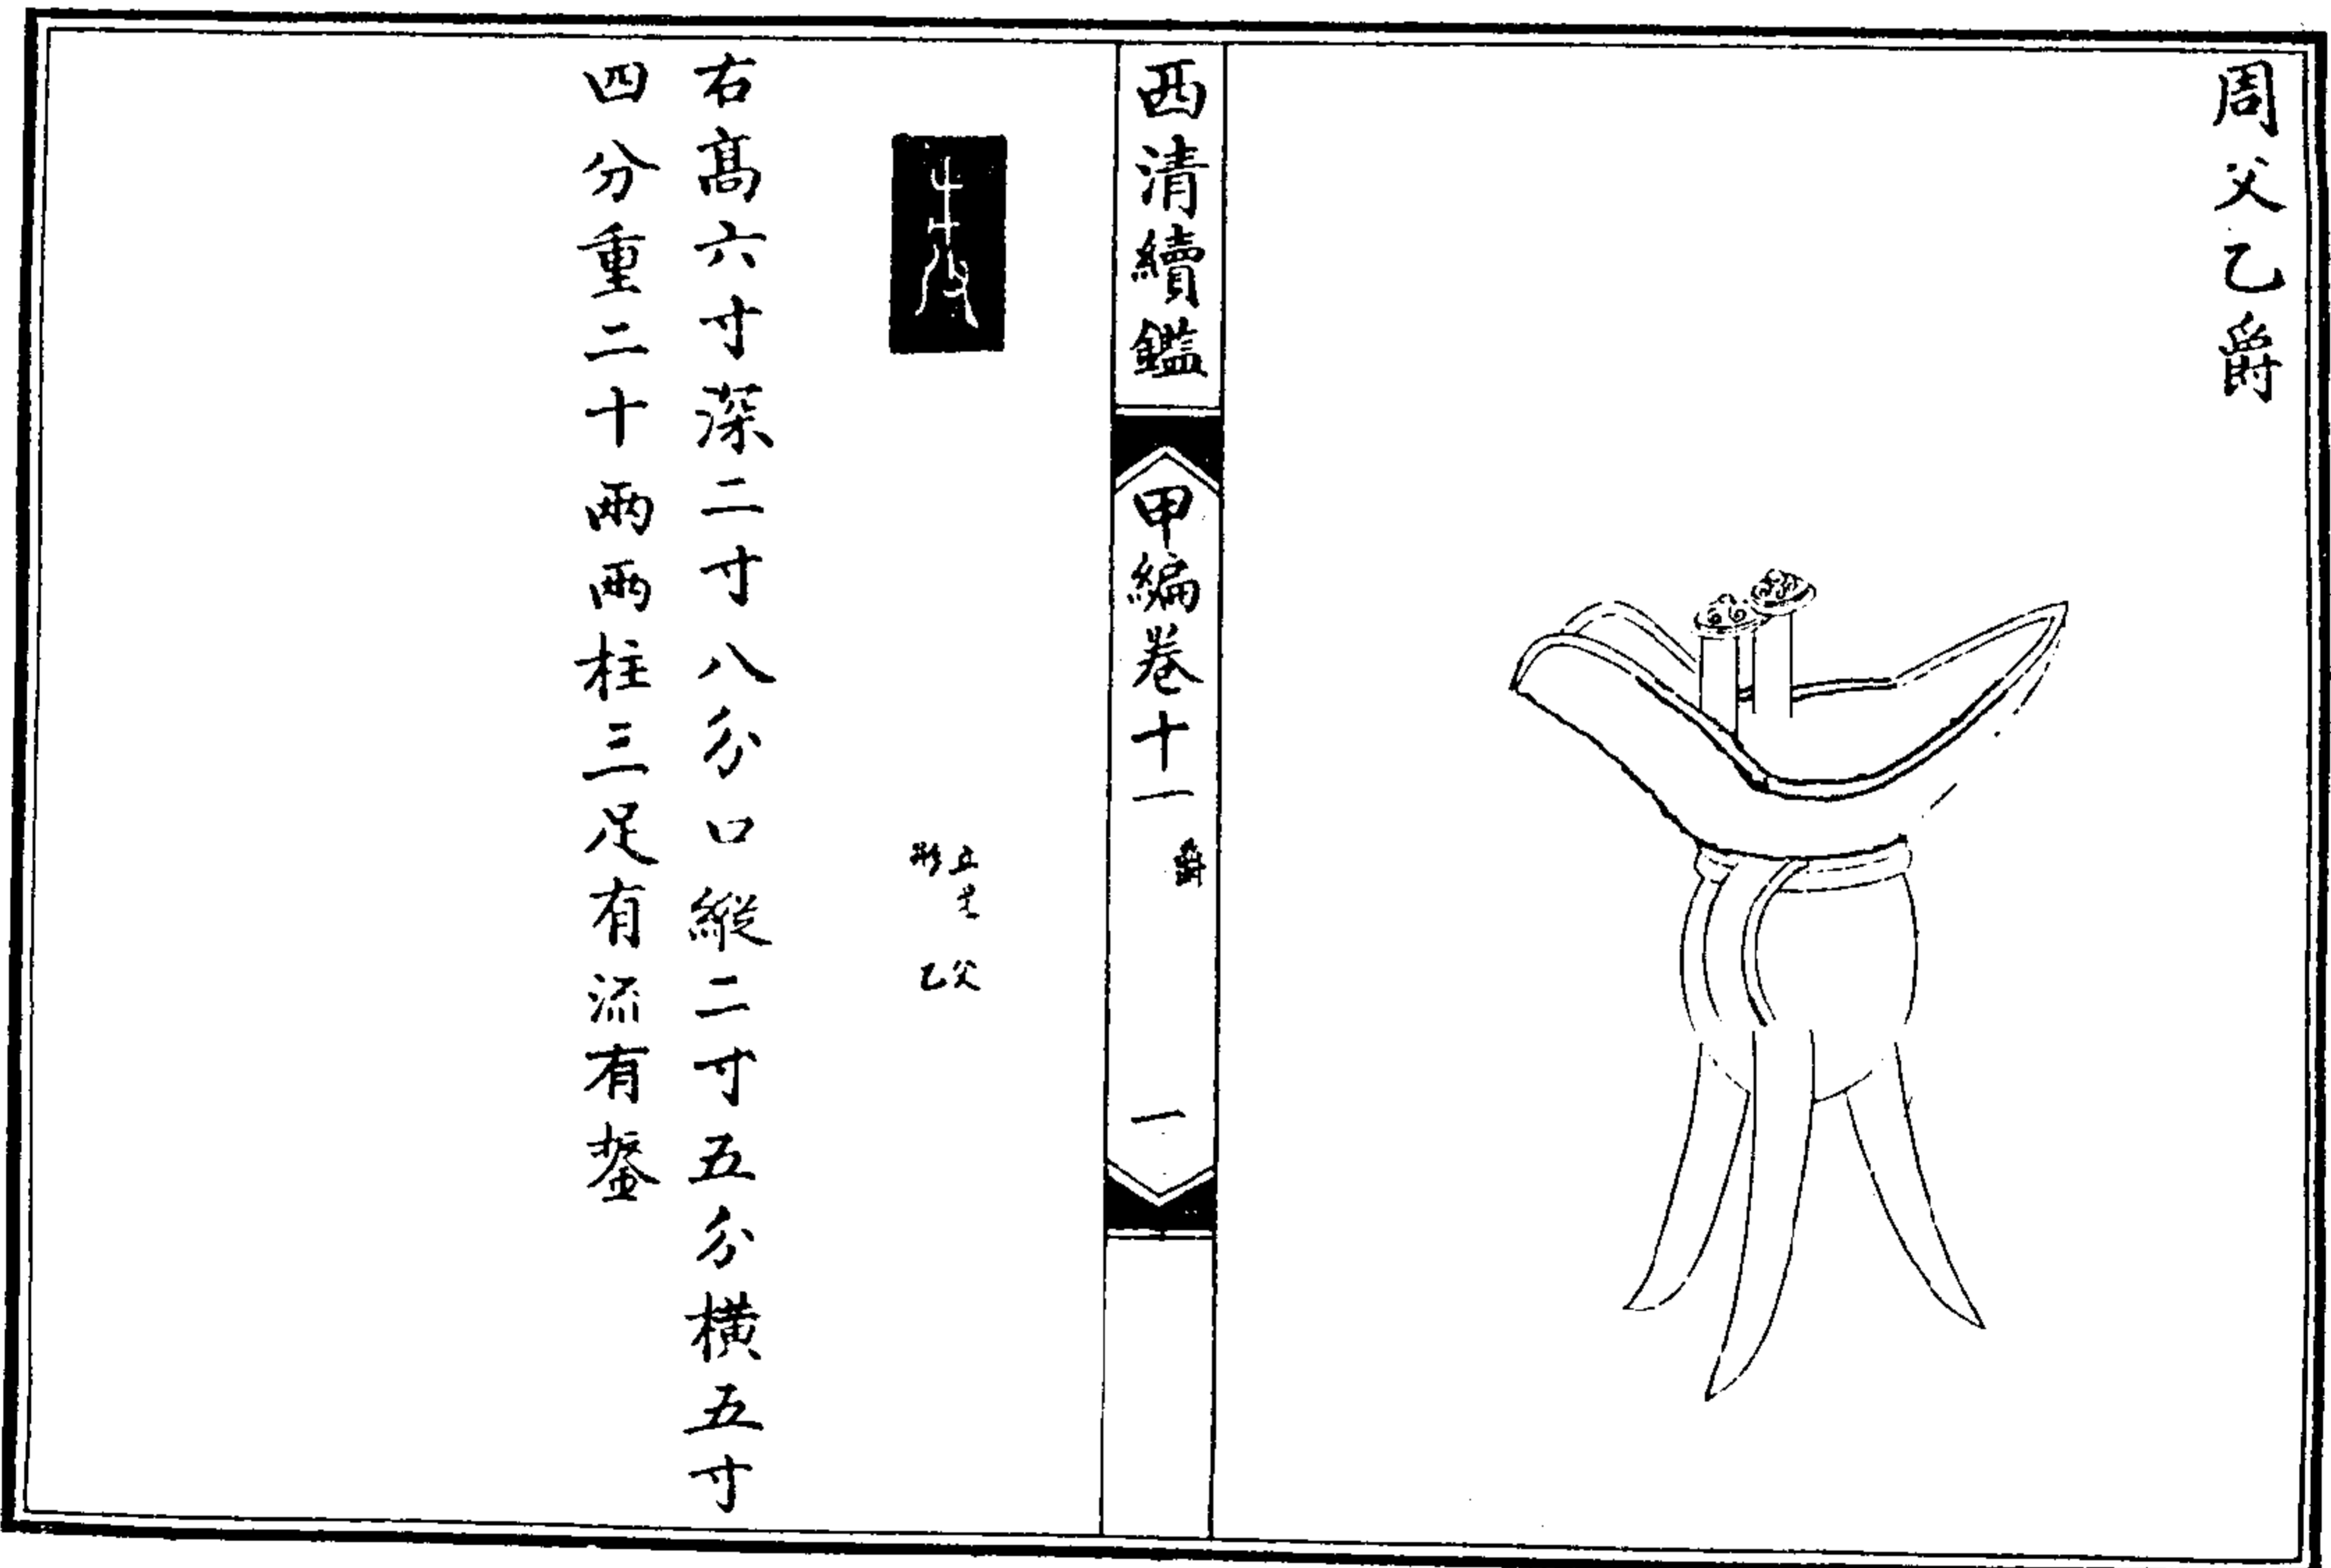 周父乙爵
西清續鑑
甲編卷十一
爵
一
立
形
父
乙
右高六寸深二寸八分口縱二寸五分橫五寸
四分重二十兩兩柱三足有流有鋬